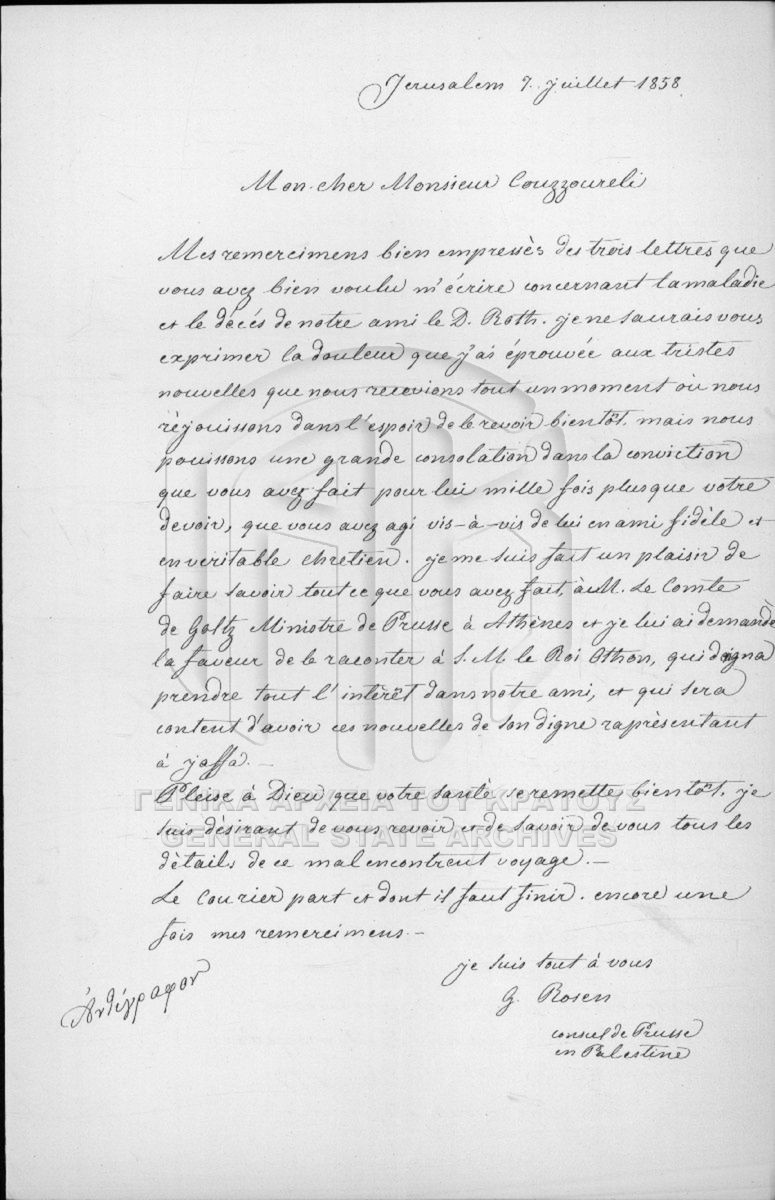 Jerusalem 7. juillet 1858
Mon cher Monsieur Couzzoureli
Mes remercimens bien empressès des trois lettres que
vous avez bien voulu m'écrire concernant la maladie
et le décés de notre ami le D. Roth. je ne saurais vous
exprimer la douleur que j'ai éprouvée aux tristes
nouvelles que nous recevions tout un moment où nous
réjouissons dans l'espoir de le revoir bientôt. mais nous
pouissons une grande consolation dans la conviction
que vous avez fait pour lui mille fois plus que votre
devoir, que vous avez agi vis-à-vis de lui en ami fidèle et
en veritable chretien. je me suis fait un plaisir de
faire savoir tout ce que vous avez fait, à M. Le Comte
de Goltz Ministre de Prusse à Athènes et je lui ai demandè
la faveur de le raconter à S. M. le Roi Othon, qui daigna
prendre tout l'intérêt dans notre ami, et qui sera
content d'avoir ces nouvelles de son digne raprèsentant
à jaffa. —
Pleise à Dieu que votre santè se remette bientôt. je
suis désirant de vous revoir et de savoir de vous tous les
dètails de ce malencontreut voyage. —
Le Courier part et dont il faut finir. encore une
fois mes remercimens. —
je suis tout à vous
G. Rosen
consul de Prusse
en Palestine
Ἀντίγραφον
ΓΕΝΙΚΑ ΑΡΧΕΙΑ ΤΟΥ ΚΡΑΤΟΥΣ
GENERAL STATE ARCHIVES